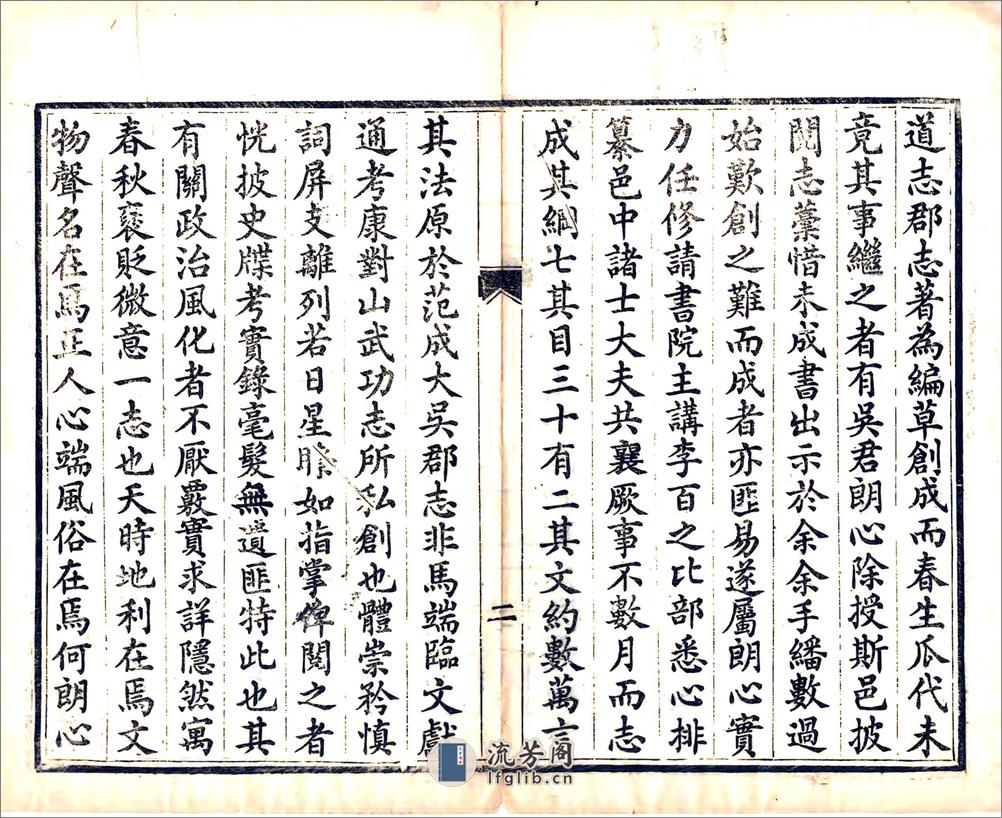 道志郡志著為編草創成而春生瓜代未
竟其事繼之者有吳君朗心除授斯邑披
閱志藁惜未成書出示於余余手繙數過
始歎創之難而成者亦匪易遂屬朗心實
力任修請書院主講李百之比部悉心排
纂邑中諸士大夫共襄厥事不數月而志
成其綱七其目三十有二其文約數萬言
二
其法原於范成大吳郡志非馬端臨文獻
通考康對山武功志所私創也體崇矜慎
詞屏支離列若日星瞭如指掌俾閱之者
恍披史牒考實錄毫髮無遺匪特此也其
有關政治風化者不厭覈實求詳隱然寓
春秋褒貶微意一志也天時地利在焉文
物聲名在焉正人心端風俗在焉何朗心
流芳閣
lfglib.cn